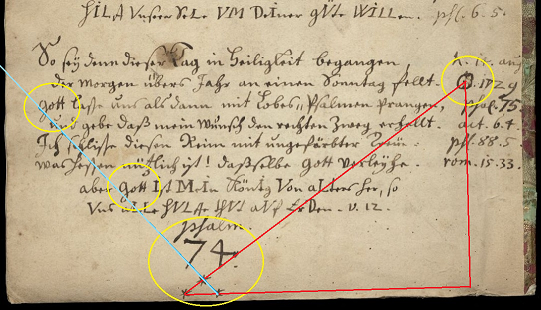 HILft Vnser SeLe VM DeIner güte WILLen. psl. 6.5.
So sey denn dieser Tag in Heiligkeit begangen,
der morgen übers Jahr an einen Sonntag fellt. 1729
Gott lasse uns als dann mit Lobes Psalmen prangen, 75.
und gebe daß mein Wunsch den rechten Zweg erhellt. act. 6.4.
Ich schliesse diesen Reim mit ungefärbter psl. 88.5
was hessen nützlich ist! dasselbe Gott verleyhe. rom. 15.33.
aber Gott Ist MeIn König Von aLters her, so
HVLffe thVt aVf ErDen. v. 12.
psalm.
74.